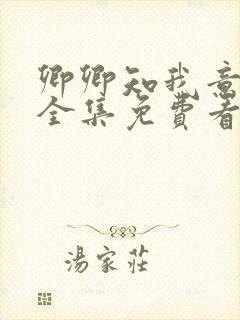 卿卿知我意
全集免費看
湯家莊